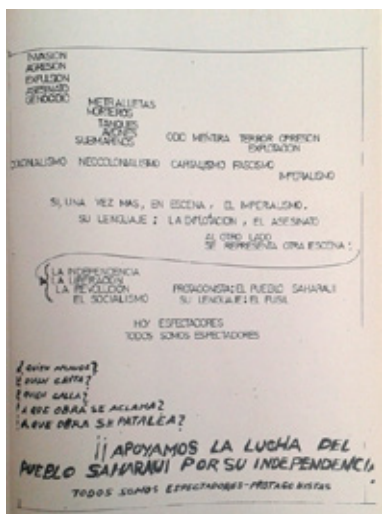 INVASION
AGRESION
EXPULSION
ASESINATO
GENOCIDIO
METRALLETAS
MORTEROS
TANQUES
AVIONES
SUBMARINOS
ODIO MENTIRA TERROR OPRESION
EXPLOTACION
COLONIALISMO NEOCOLONIALISMO CAPITALISMO FASCISMO
IMPERIALISMO
SI, UNA VEZ MAS, EN ESCENA, EL IMPERIALISMO.
SU LENGUAJE : LA EXPLOTACION, EL ASESINATO
AL OTRO LADO
SE REPRESENTA OTRA ESCENA:
LA INDEPENDENCIA
LA LIBERACION
LA REVOLUCION PROTAGONISTA: EL PUEBLO SAHARAUI
EL SOCIALISMO SU LENGUAJE: EL FUSIL
HOY ESPECTADORES
TODOS SOMOS ESPECTADORES
¿QUIEN APLAUDE?
¿QUIEN GRITA?
¿QUIEN CALLA?
¿A QUE OBRA SE ACLAMA?
¿A QUE OBRA SE PATALEA?
¡¡ APOYAMOS LA LUCHA DEL
PUEBLO SAHARAUI POR SU INDEPENDENCIA
TODOS SOMOS ESPECTADORES-PROTAGONISTAS